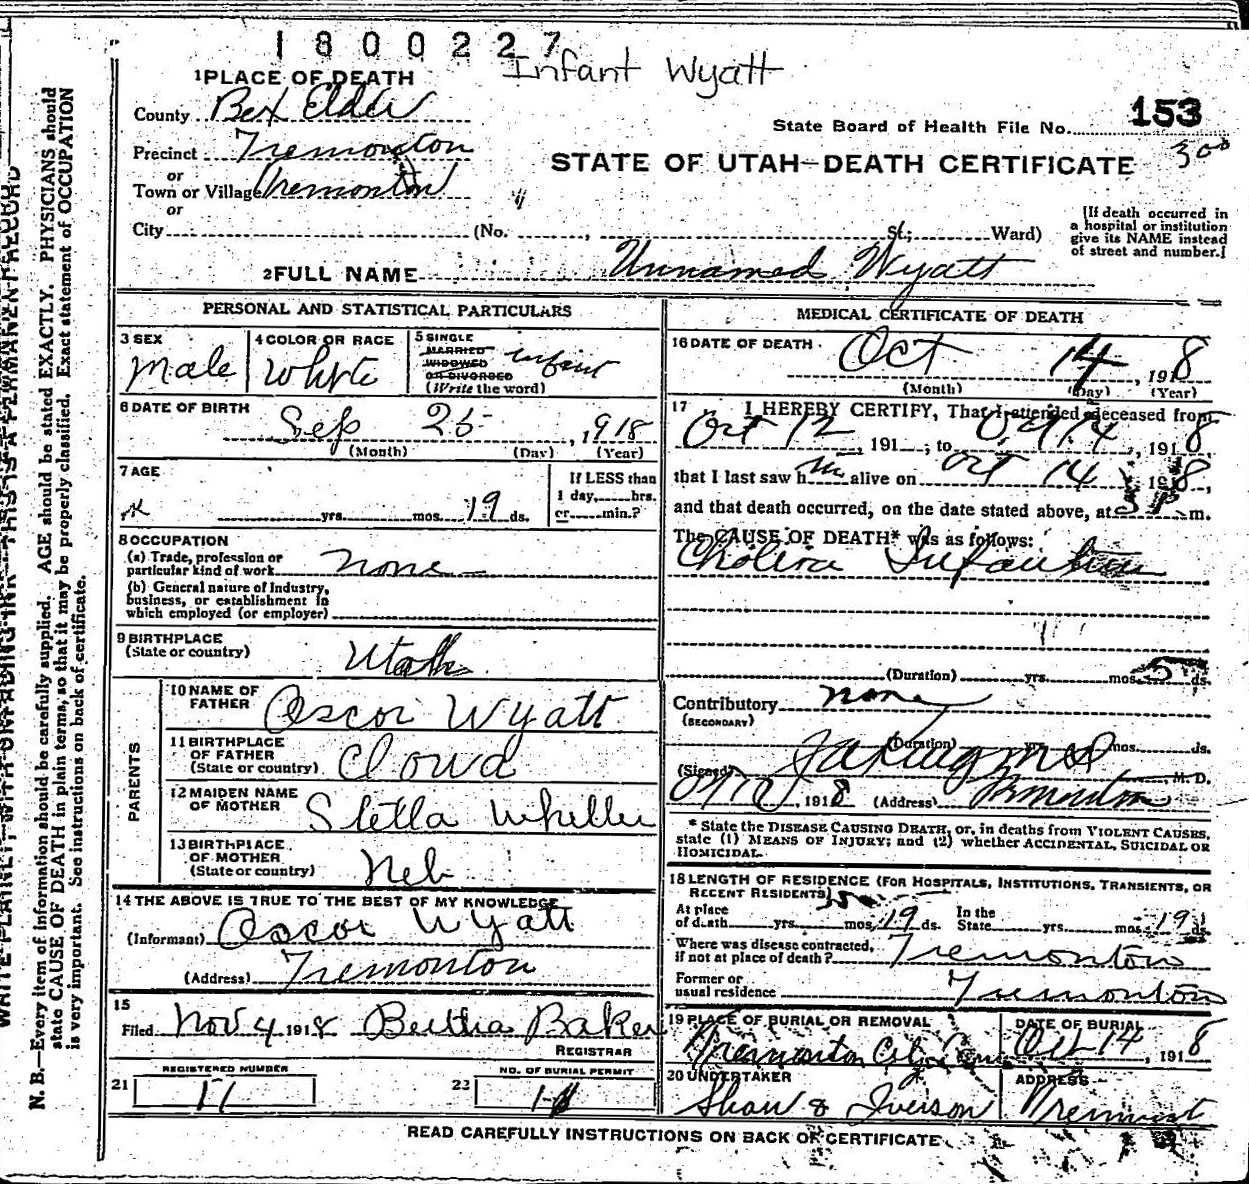 1800227
Infant Wyatt
1 PLACE OF DEATH
County Box Elder
State Board of Health File No. 153
300
Precinct Tremonton
STATE OF UTAH—DEATH CERTIFICATE
or
Town or Village Tremonton
or
City (No. , St.; Ward)
[If death occurred in a hospital or institution give its NAME instead of street and number.]
2 FULL NAME Unnamed Wyatt
PERSONAL AND STATISTICAL PARTICULARS
3 SEX Male
4 COLOR OR RACE White
5 SINGLE MARRIED WIDOWED OR DIVORCED (Write the word) infant
6 DATE OF BIRTH
Sep 25 , 1918
(Month) (Day) (Year)
7 AGE
yrs. mos. 19 ds.
If LESS than 1 day, hrs. or min.?
8 OCCUPATION
(a) Trade, profession or
particular kind of work none
(b) General nature of Industry,
business, or establishment in
which employed (or employer)
9 BIRTHPLACE
(State or country) Utah
PARENTS
10 NAME OF
FATHER Oscor Wyatt
11 BIRTHPLACE
OF FATHER
(State or country)
12 MAIDEN NAME
OF MOTHER Stella
13 BIRTHPLACE
OF MOTHER
(State or country) Neb
14 THE ABOVE IS TRUE TO THE BEST OF MY KNOWLEDGE
(Informant) Oscor Wyatt
(Address) Tremonton
15
Filed Nov 4 1918 Bertha Baker
REGISTRAR
21 REGISTERED NUMBER 17
22 NO. OF BURIAL PERMIT
MEDICAL CERTIFICATE OF DEATH
16 DATE OF DEATH
Oct 14 , 1918
(Month) (Day) (Year)
17 I HEREBY CERTIFY, That I attended deceased from
Oct 12 , 191 ; to Oct 14 , 1918
that I last saw him alive on Oct 14 , 1918,
and that death occurred, on the date stated above, at m.
The CAUSE OF DEATH* was as follows:
Cholera Infantum
(Duration) yrs. mos. 5 ds.
Contributory none
(SECONDARY)
(Duration) yrs. mos. ds.
(Signed) , M. D.
, 1918 (Address) Tremonton
* State the DISEASE CAUSING DEATH, or, in deaths from VIOLENT CAUSES,
state (1) MEANS OF INJURY; and (2) whether ACCIDENTAL, SUICIDAL OR
HOMICIDAL.
18 LENGTH OF RESIDENCE (FOR HOSPITALS, INSTITUTIONS, TRANSIENTS, OR
RECENT RESIDENTS)
At place of death yrs. mos. 19 ds. In the State yrs. mos. 19 ds.
Where was disease contracted,
if not at place of death? Tremonton
Former or
usual residence Tremonton
19 PLACE OF BURIAL OR REMOVAL
Tremonton City Cem
DATE OF BURIAL
Oct 14 , 1918
20 UNDERTAKER
Shaw & Iverson
ADDRESS
READ CAREFULLY INSTRUCTIONS ON BACK OF CERTIFICATE
WRITE PLAINLY, WITH UNFADING INK—THIS IS A PERMANENT RECORD
N. B.—Every item of information should be carefully supplied. AGE should be stated EXACTLY. PHYSICIANS should
state CAUSE OF DEATH in plain terms, so that it may be properly classified. Exact statement of OCCUPATION
is very important. See instructions on back of certificate.